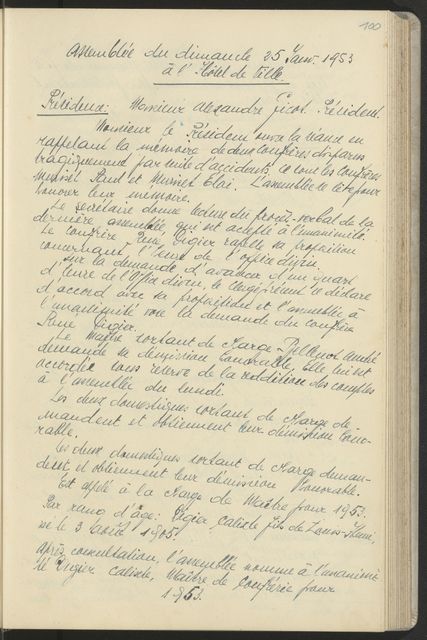 100
Assemblée du dimanche 25 Janv. 1953
à l'Hôtel de Ville.
Présidence: Monsieur Alexandre Gicot. Président.
Monsieur le Président ouvre la séance en
rappelant la mémoire de deux confrères disparus
tragiquement par suite d'accidents, ce sont les confrères
Muriset Paul et Muriset Eloi. L'assemblée se lève pour
honorer leur mémoire.
Le secrétaire donne lecture du procès-verbal de la
dernière assemblée, qui est accepté à l'unanimité.
Le confrère René Digier rappelle sa proposition
concernant l'heure de l'office divin.
Sur la demande d'avancer d'un quart
d'heure de l'office divin, le clergé présent se déclare
d'accord avec sa proposition et l'assemblée à
l'unanimité vote la demande du confrère
René Digier.
Le Maître sortant de charge Pellenor André
demande sa démission honorable, elle lui est
accordée sous réserve de la reddition des comptes
à l'assemblée du lundi.
Les deux domestiques sortant de charge de-
mandent et obtiennent leur démission hono-
rable.
Les deux domestiques sortant de charge deman-
dent et obtiennent leur démission honorable.
Est appelé à la charge de Maître pour 1953.
Par rang d'âge: Digier Calixte fils de
né le 3 août 1905.
Après consultation, l'assemblée nomme à l'unanimi-
té Digier Calixte, Maître de Confrérie pour
1953.